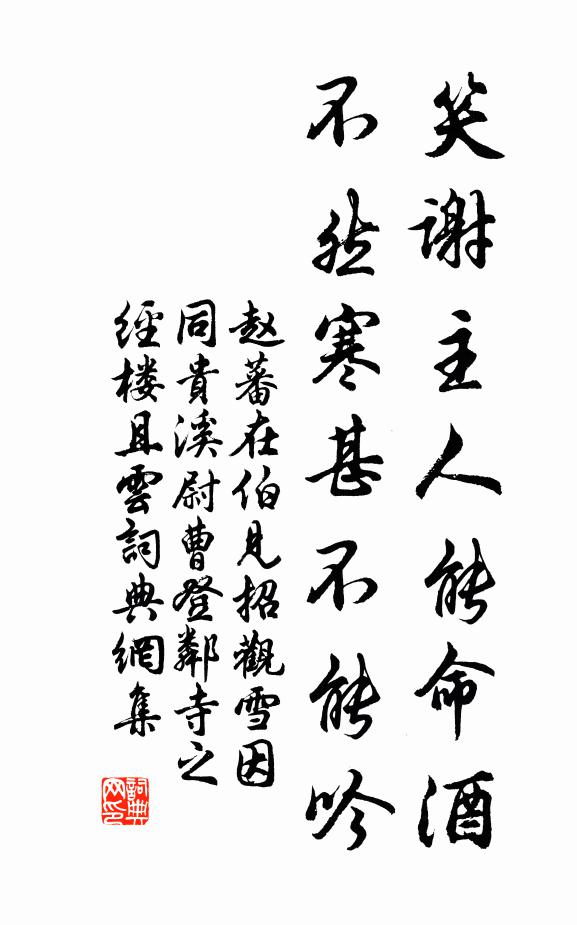 笑谢主人能命酒
不然寒甚不能吟
赵蕃在伯見招觀雪因
同貴溪尉曹登鄰寺之
經楼且雲詞典網集
詞典網印